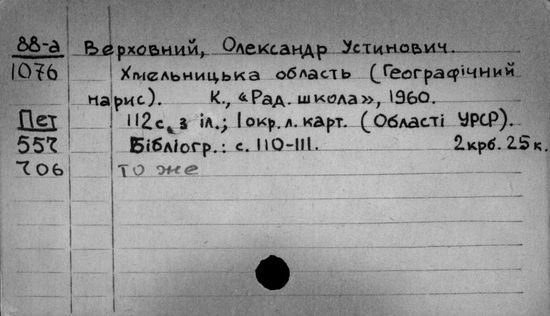 88-а Верховний, Олександр Устинович.
1076 Хмельницька область (Географічний
нарис). К., «Рад. школа», 1960.
Пет 112 с. з іл.; 1 окр. л. карт. (Області УРСР).
557 Бібліогр.: с. 110-111. 2 крб. 25 к.
706 то же